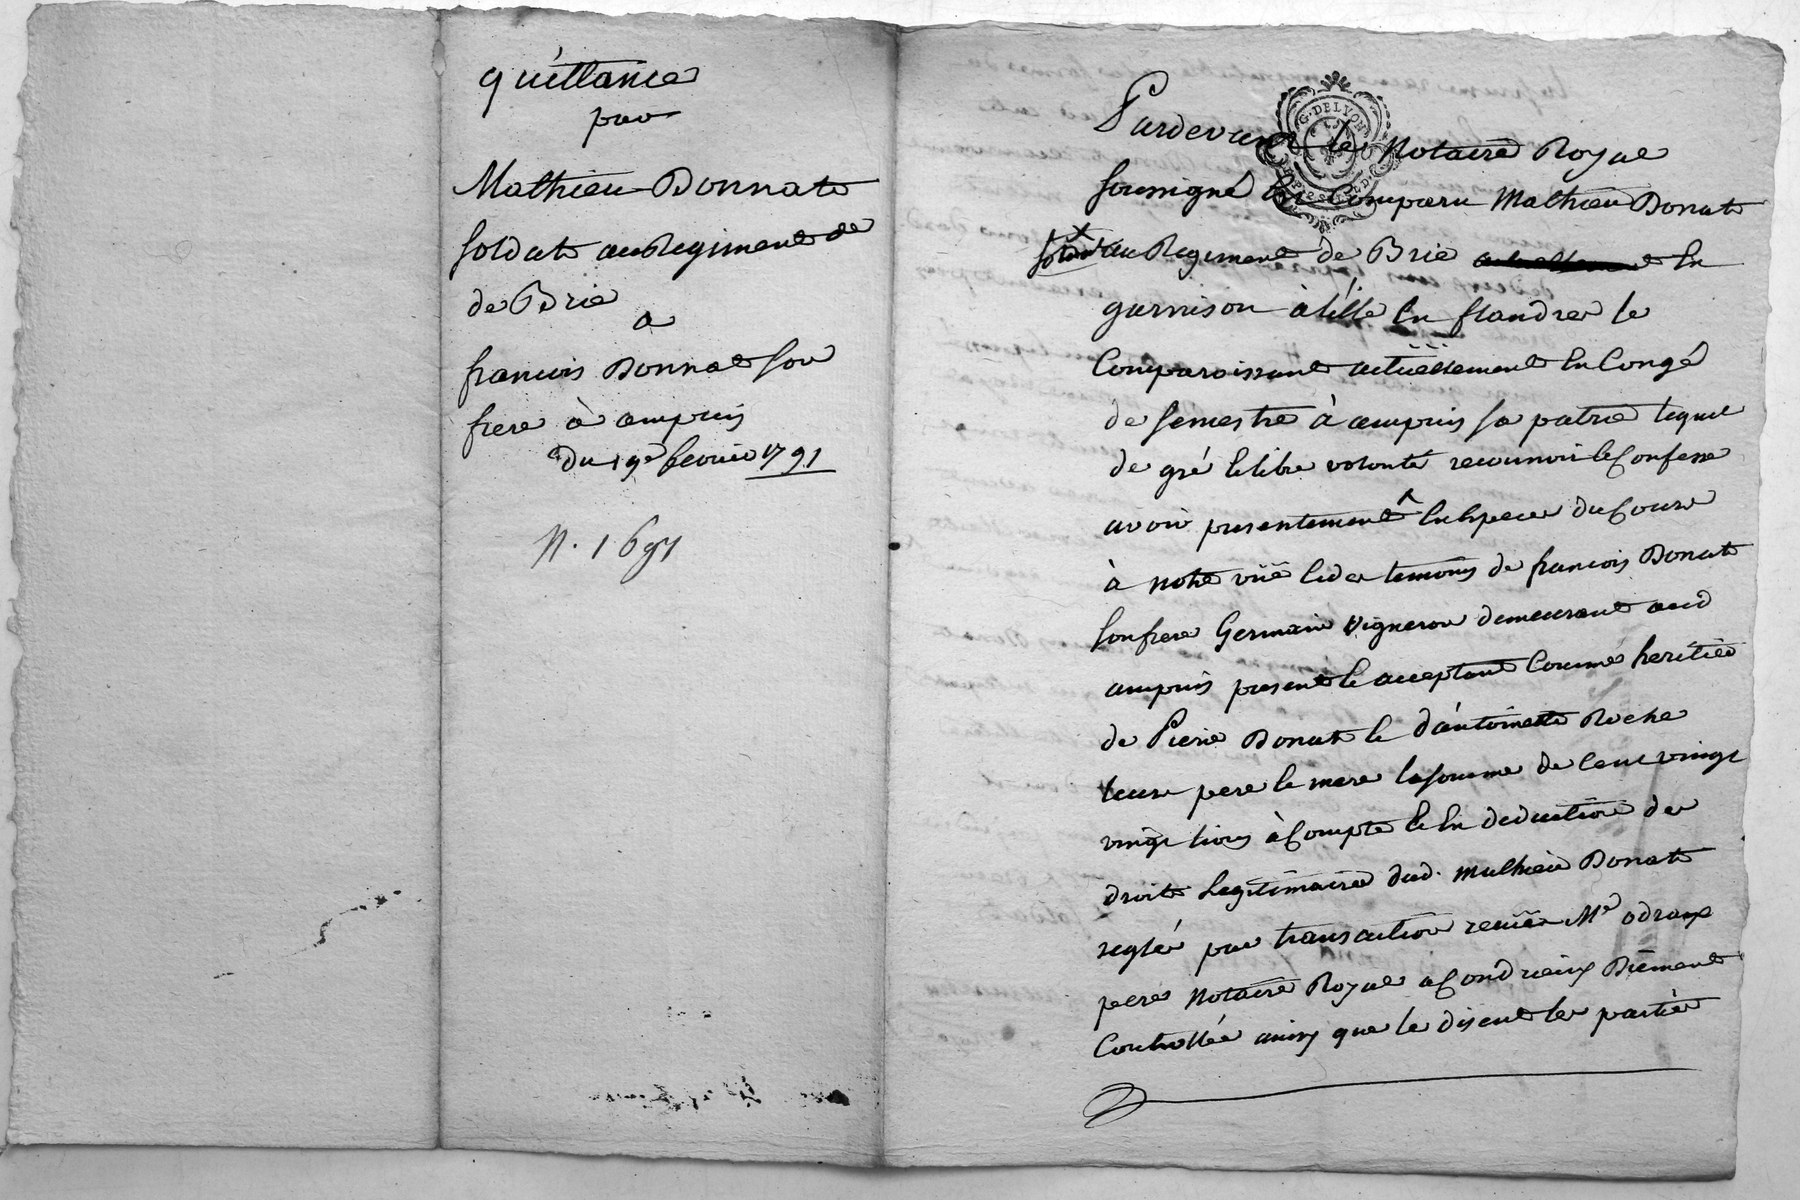 quittance
par
Mathieu Donnat
soldat au Regiment de
de Brie
a
francois Donnat son
frere à ampuis
du 19e fevrier 1791
N. 1691
G. DELYON
Pardevant le Notaire Royal
soussigné est Comparu Mathieu Donat
soldat au Regiment de Brie en
garnison à lille en flandres le
Comparoissant actüellement en Congé
de semestre à ampuis sa patrie lequel
de gré et libre volonté reconnoit et Confesse
avoir presentement en espece du Cours
à notre vüe et des temoins de francois Donat
son frere Germain vigneron demeurant aud
ampuis present et acceptant Comme heritier
de Pierre Donat et d'antoinette Roche
leurs pere et mere la somme de Cent vingt
vingt livres à Compte et en deduction des
droits Legitimaires dud. Mathieu Donat
reglés par transaction reçüe Me odrax
pere Notaire Royal a Condrieux Düement
Controllée ainsy que le disent les parties